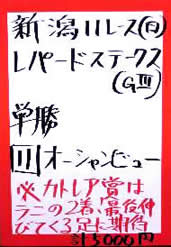 新潟11レース(日)
レパードステークス
(GⅢ)
単勝
11 オーシャンビュー
必カトレア賞は
ラニの2着、最後伸
びてくる足に期待
計5000円